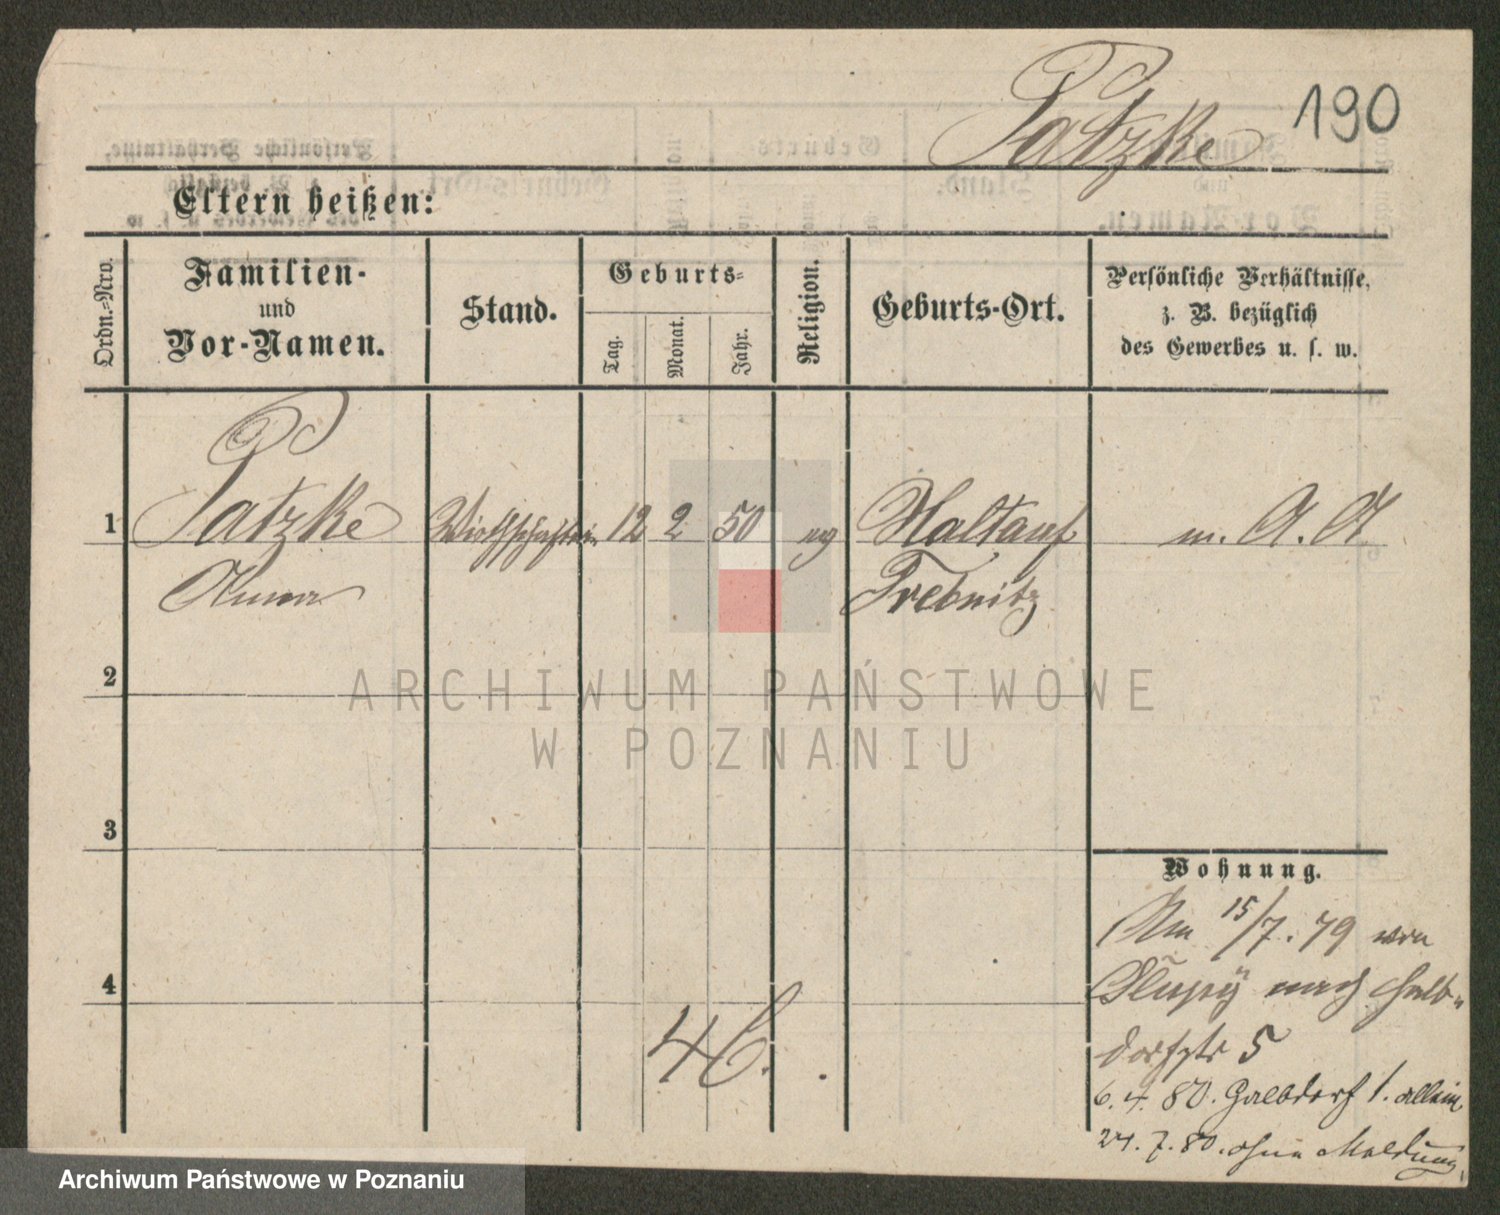 190
Patzke
Eltern heißen:
Ordn.-Nro.
Familien-
und
Vor-Namen.
Stand.
Geburts-
Tag.
Monat.
Jahr.
Religion.
Geburts-Ort.
Persönliche Verhältnisse,
z. B. bezüglich
des Gewerbes u. s. w.
1 Patzke Wirthschafterin 12 2 50 ev Maltauf m. A. A.
Anna Trebnitz
2
ARCHIWUM PAŃSTWOWE
W POZNANIU
3
Wohnung.
Am 15/7. 79 von
nach Halb-
4
dorfstr 5
46.
6. 4. 80. Halbdorf 1. allein
24. 7. 80. ohne Meldung.
Archiwum Państwowe w Poznaniu